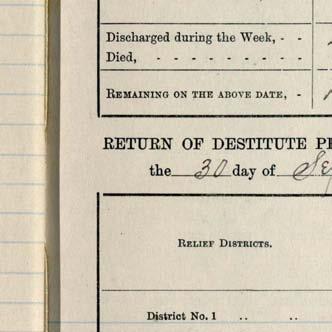 Discharged during the Week, - -
Died, - - - - - - - - -
REMAINING ON THE ABOVE DATE, -
RETURN OF DESTITUTE
the 30 day of
RELIEF DISTRICTS.
District No. 1 .. ..